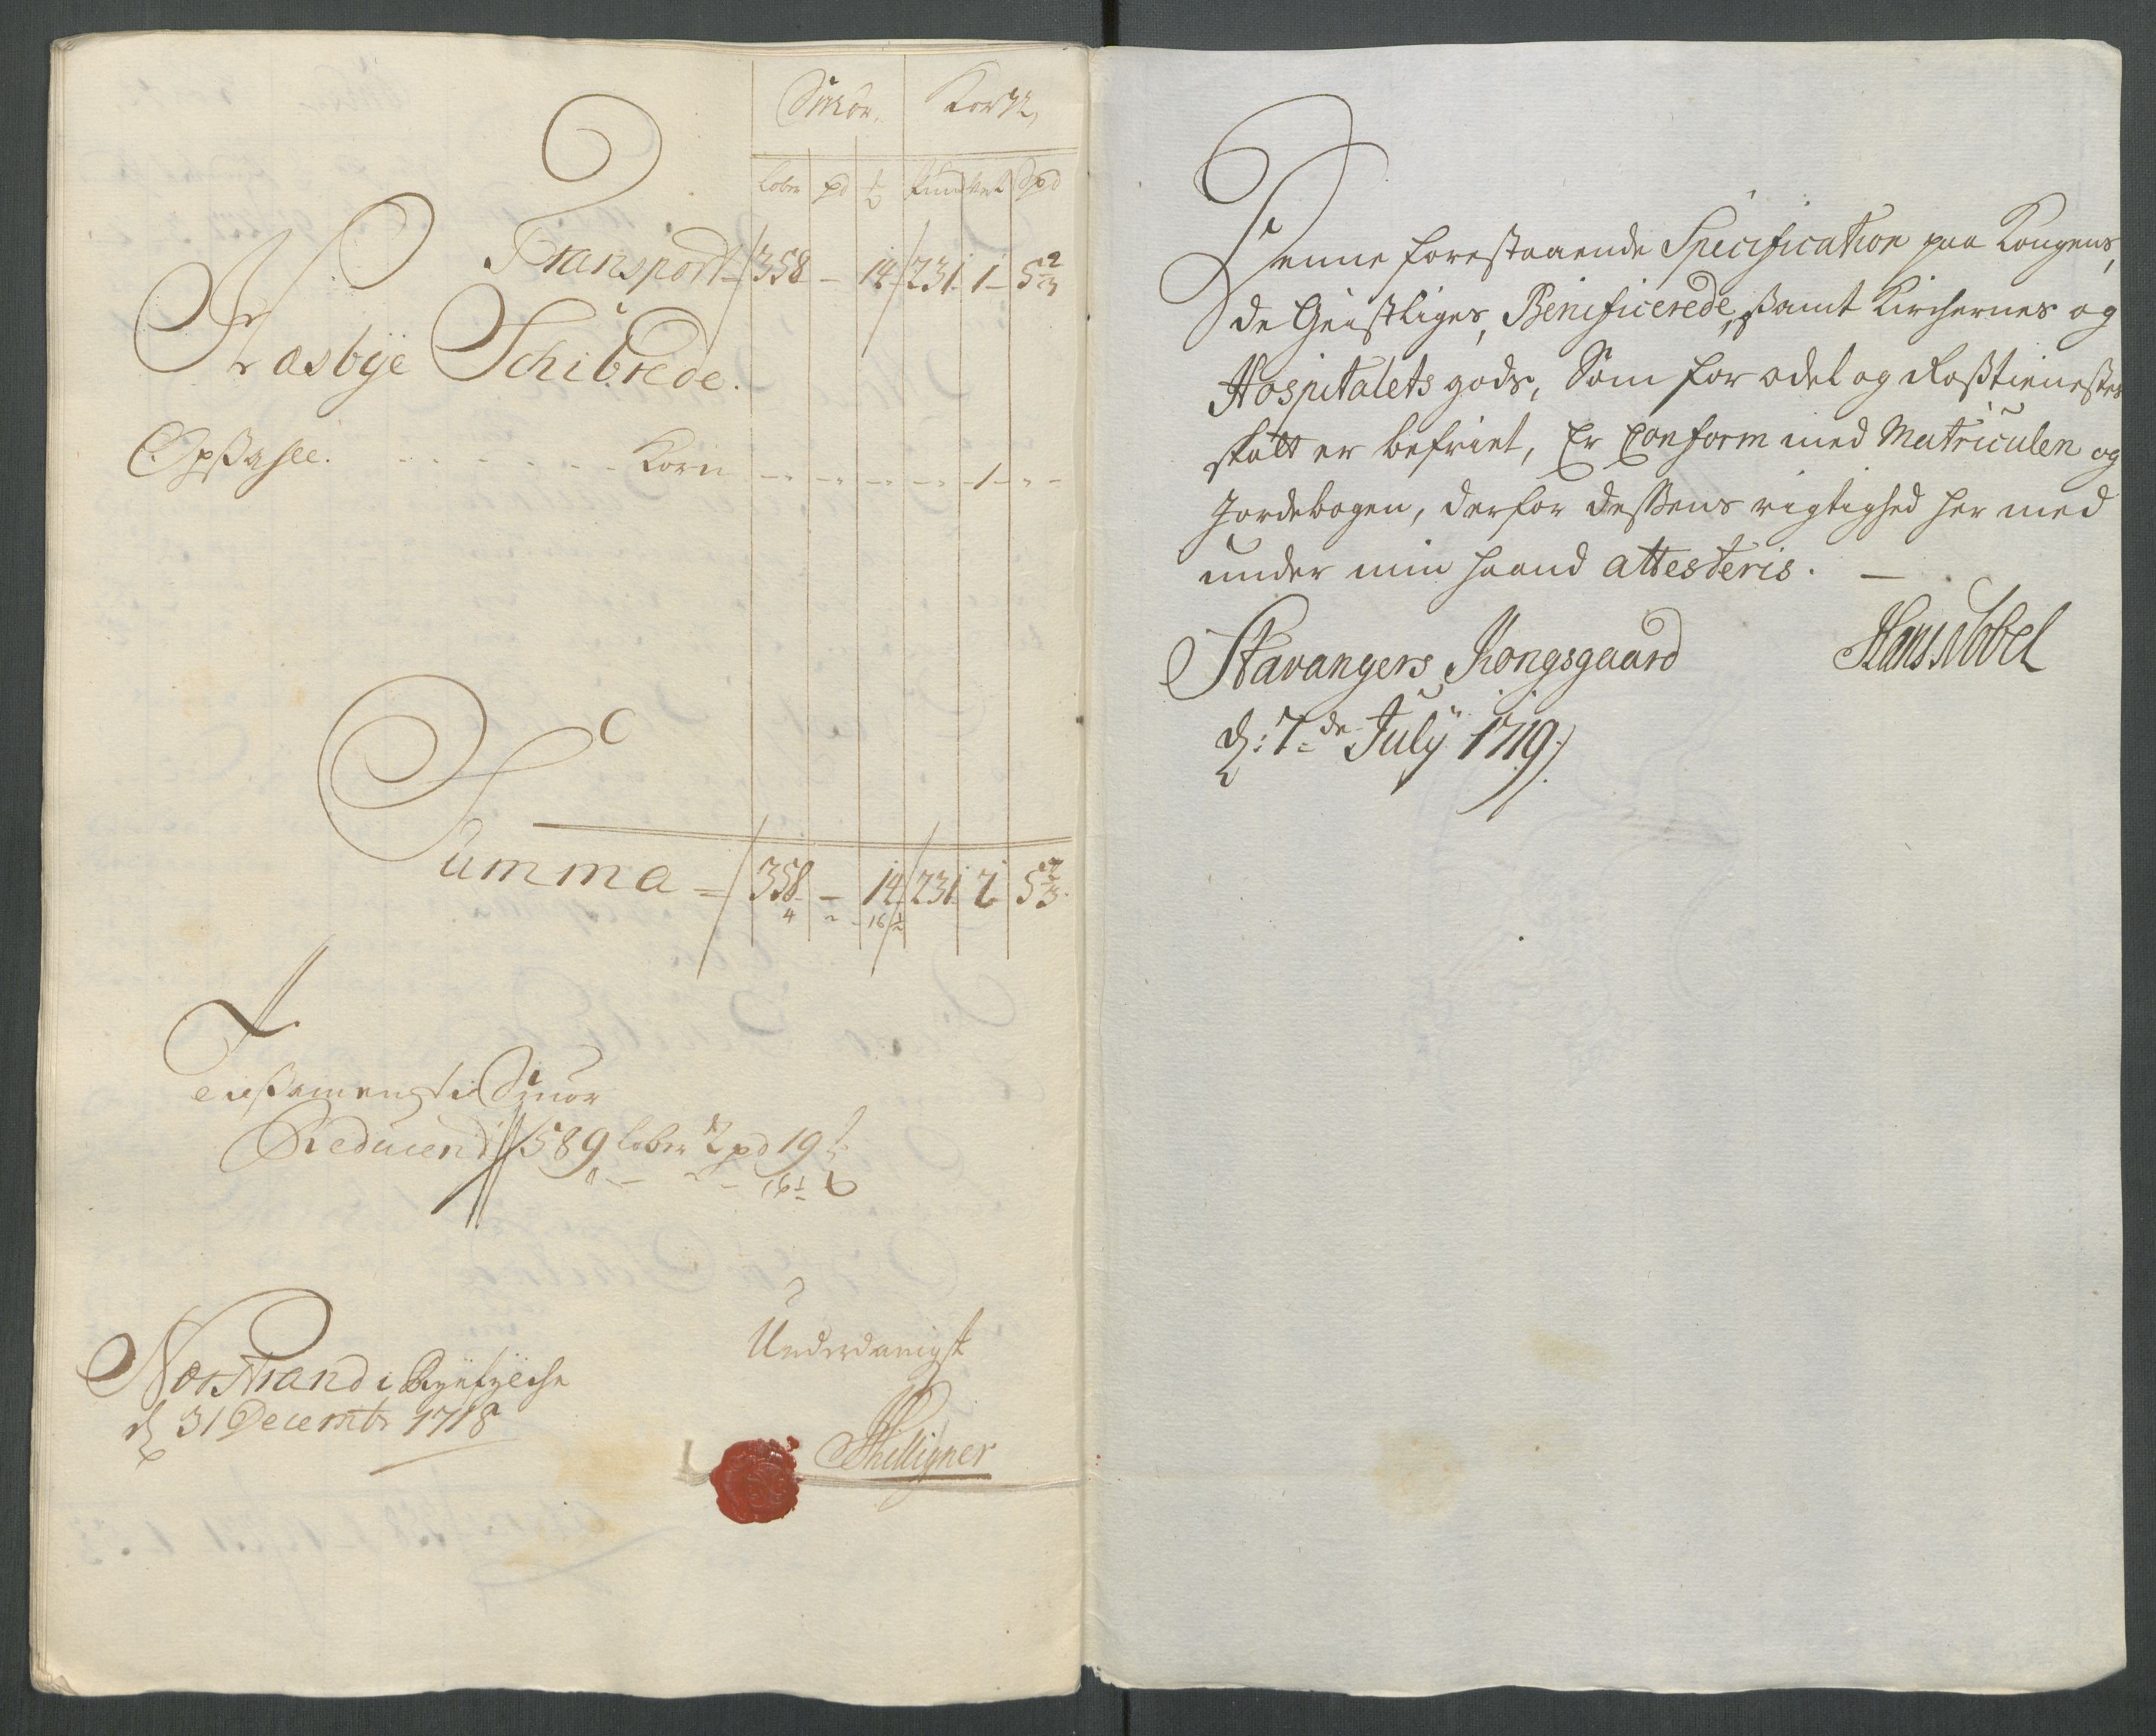 Smör. Korn,
Löber pd Pund Vet Spd
Transport 358 - 14 231 1 5 2/3
Hasbÿe Schibrede.
Opsahl. Korn - - - - 1 - -
Summa = 358 - 14 231 2 5 2/3
4 - 16 1/2
Reducerid 589 Löber 2 pd 19
16 1/2
Norstrand i Ryefÿlche
d 31 Decembr 1718
Underdanigst
Denne forestaaende Specification paa Kongens,
de Geistliges, Benificerede, samt Kirchernes og
Hospitalets gods, Som for odel og Rostienestes
skatt er befriet, Er Conform med Matriculen og
Jordebogen, derfor dessens rigtighed her med
under min haand attesteris. —
Stavangers Kongsgaard
Hans Nobel
d: 7de Julÿ 1719